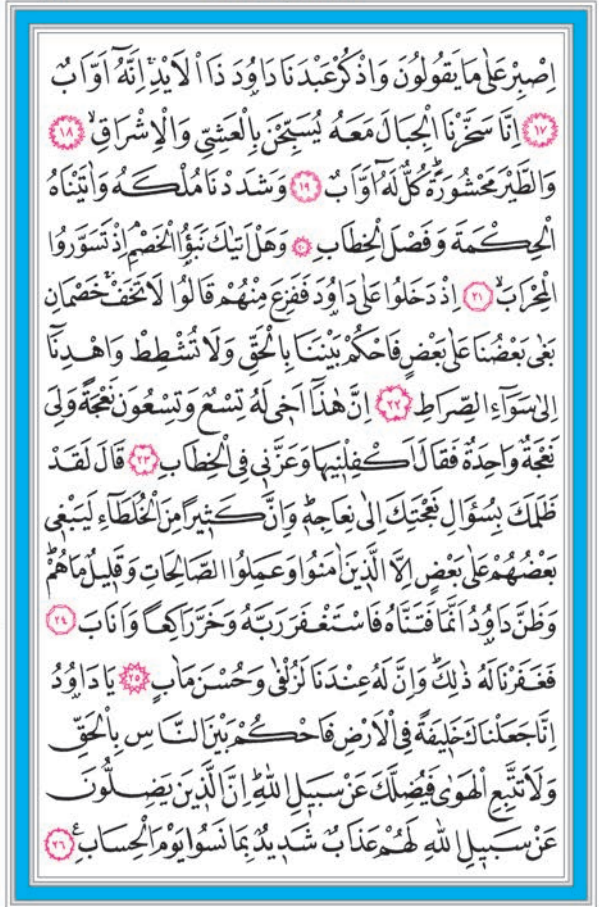 اِصْبِرْ عَلٰى مَا يَقُولُونَ وَاذْكُرْ عَبْدَنَا دَاوُ۫دَ ذَا الْاَيْدِۚ اِنَّهُٓ اَوَّابٌ
﴿١٧﴾ اِنَّا سَخَّرْنَا الْجِبَالَ مَعَهُ يُسَبِّحْنَ بِالْعَشِيِّ وَالْاِشْرَاقِۙ ﴿١٨﴾
وَالطَّيْرَ مَحْشُورَةًۜ كُلٌّ لَهُٓ اَوَّابٌ ﴿١٩﴾ وَشَدَدْنَا مُلْكَهُ وَاٰتَيْنَاهُ
الْحِكْمَةَ وَفَصْلَ الْخِطَابِ ﴿٢٠﴾ وَهَلْ اَتٰيكَ نَبَؤُا الْخَصْمِۢ اِذْ تَسَوَّرُوا
الْمِحْرَابَۙ ﴿٢١﴾ اِذْ دَخَلُوا عَلٰى دَاوُ۫دَ فَفَزِعَ مِنْهُمْ قَالُوا لَا تَخَفْۚ خَصْمَانِ
بَغٰى بَعْضُنَا عَلٰى بَعْضٍ فَاحْكُمْ بَيْنَنَا بِالْحَقِّ وَلَا تُشْطِطْ وَاهْدِنَٓا
اِلٰى سَوَٓاءِ الصِّرَاطِ ﴿٢٢﴾ اِنَّ هٰذَٓا اَخ۪ي لَهُ تِسْعٌ وَتِسْعُونَ نَعْجَةً وَلِيَ
نَعْجَةٌ وَاحِدَةٌ فَقَالَ اَكْفِلْن۪يهَا وَعَزَّن۪ي فِي الْخِطَابِ ﴿٢٣﴾ قَالَ لَقَدْ
ظَلَمَكَ بِسُؤَالِ نَعْجَتِكَ اِلٰى نِعَاجِه۪ۜ وَاِنَّ كَث۪يرًا مِنَ الْخُلَطَٓاءِ لَيَبْغ۪ي
بَعْضُهُمْ عَلٰى بَعْضٍ اِلَّا الَّذ۪ينَ اٰمَنُوا وَعَمِلُوا الصَّالِحَاتِ وَقَل۪يلٌ مَا هُمْۜ
وَظَنَّ دَاوُ۫دُ اَنَّمَا فَتَنَّاهُ فَاسْتَغْفَرَ رَبَّهُ وَخَرَّ رَاكِعًا وَاَنَابَ ﴿٢٤﴾
فَغَفَرْنَا لَهُ ذٰلِكَۜ وَاِنَّ لَهُ عِنْدَنَا لَزُلْفٰى وَحُسْنَ مَاٰبٍ ﴿٢٥﴾ يَا دَاوُ۫دُ
اِنَّا جَعَلْنَاكَ خَل۪يفَةً فِي الْاَرْضِ فَاحْكُمْ بَيْنَ النَّاسِ بِالْحَقِّ
وَلَا تَتَّبِعِ الْهَوٰى فَيُضِلَّكَ عَنْ سَب۪يلِ اللّٰهِۜ اِنَّ الَّذ۪ينَ يَضِلُّونَ
عَنْ سَب۪يلِ اللّٰهِ لَهُمْ عَذَابٌ شَد۪يدٌ بِمَا نَسُوا يَوْمَ الْحِسَابِ۟ ﴿٢٦﴾